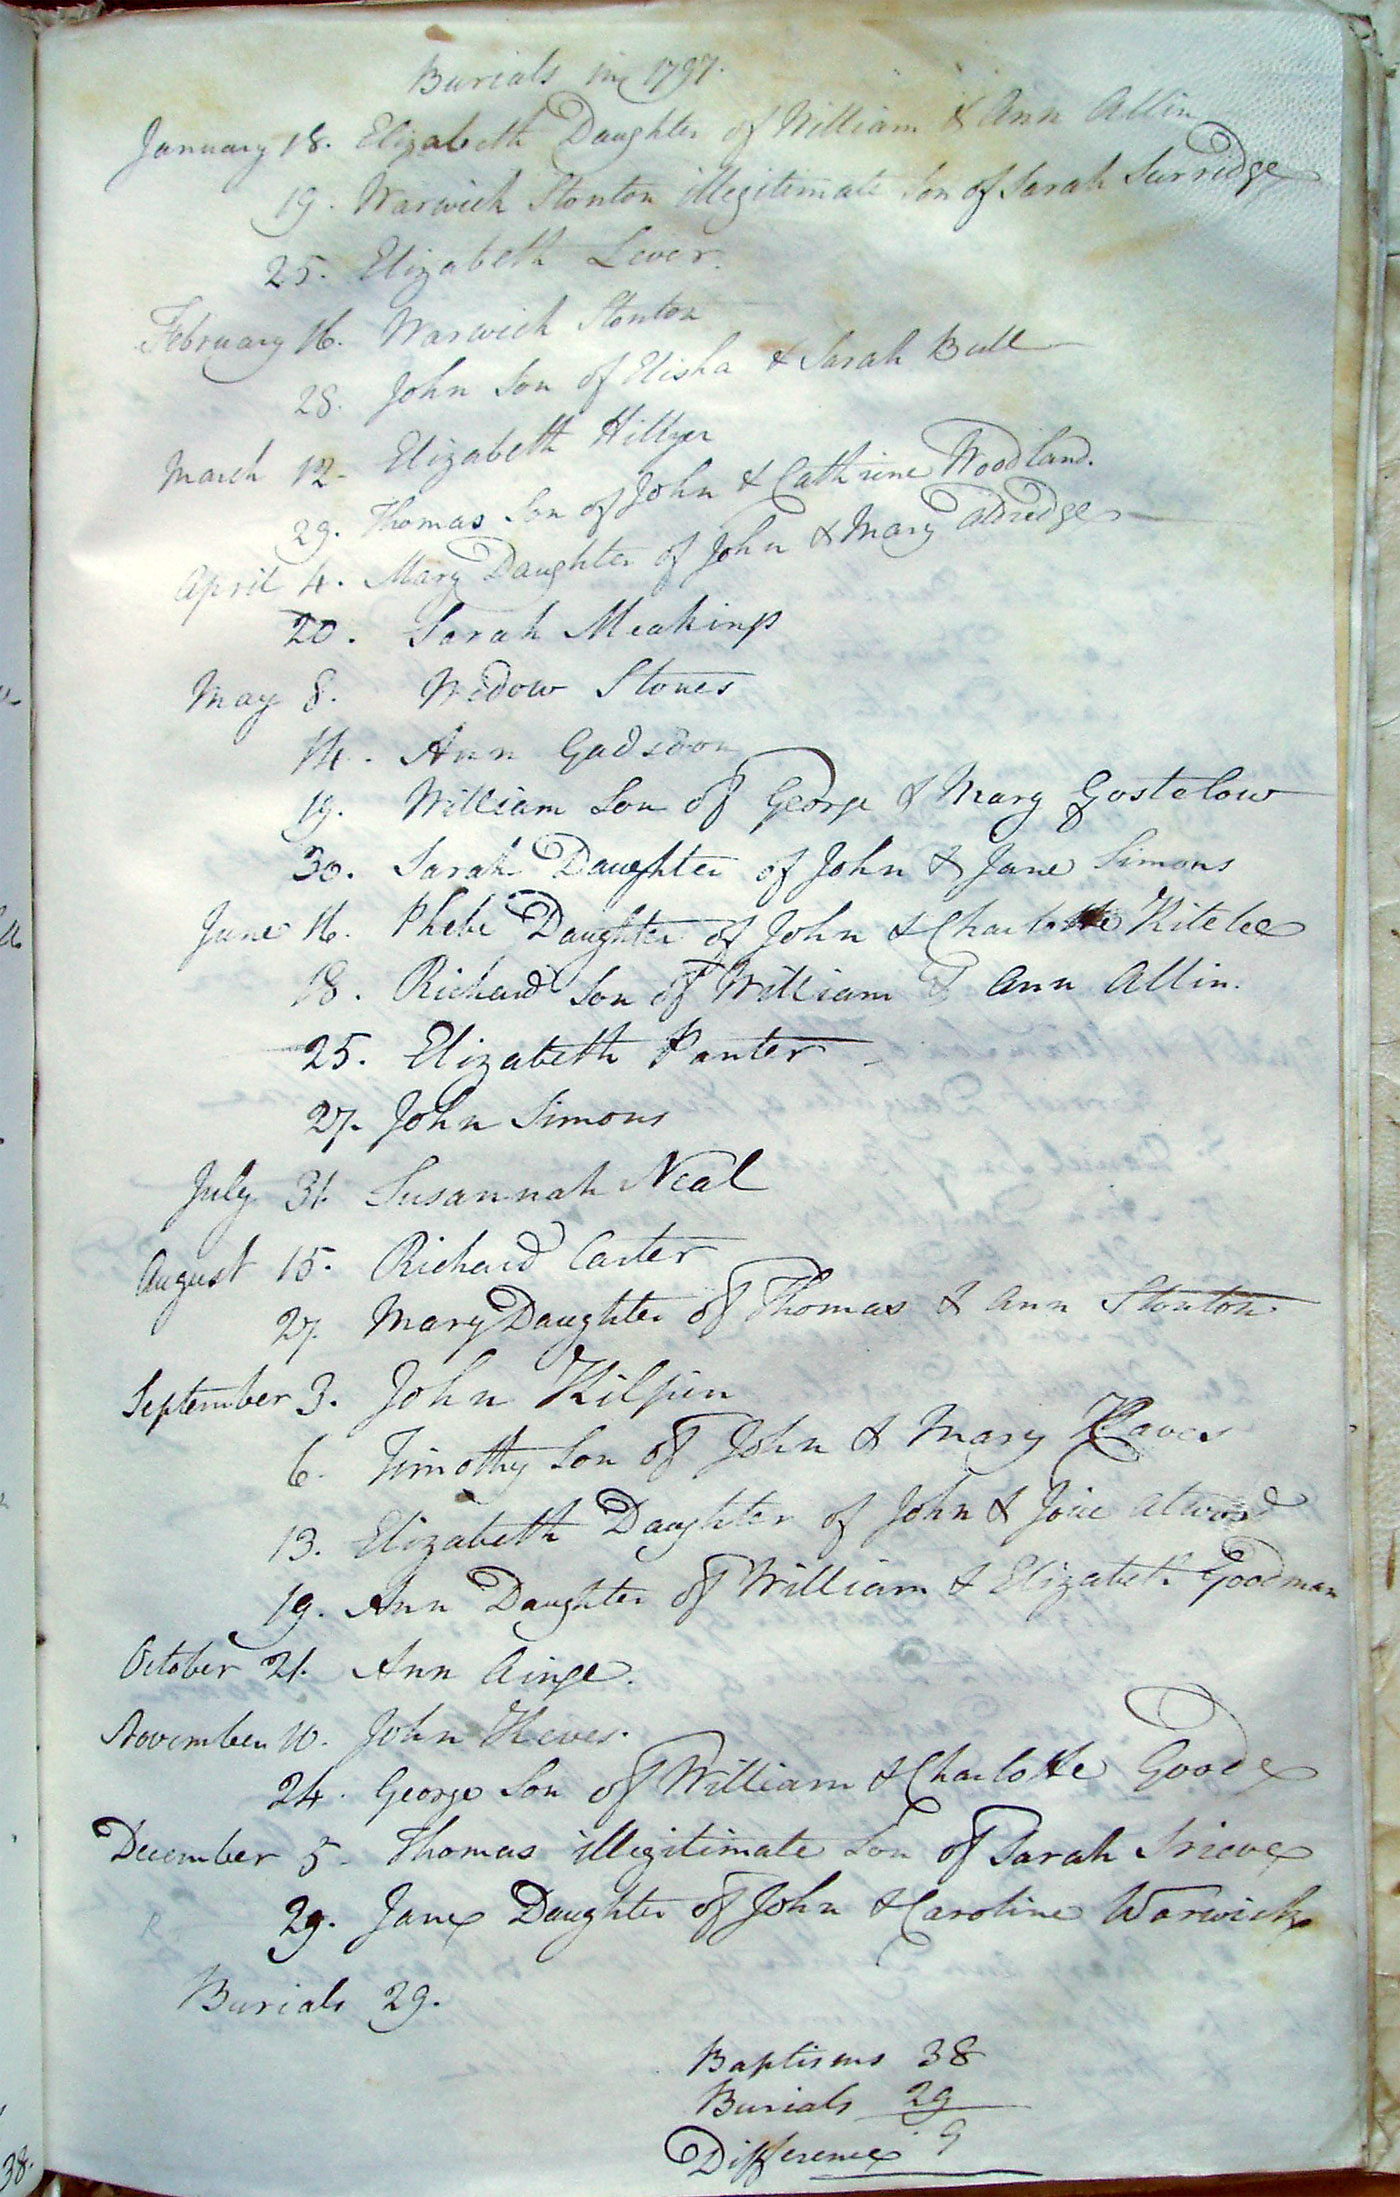 Burials in 1797.
January 18. Elizabeth Daughter of William & Ann Allin
19. Warwick Stonton illegitimate Son of Sarah Surridge
25. Elizabeth Lever
February 16. Warwick Stonton
28. John Son of Elisha & Sarah Bull
March 12. Elizabeth Hillyer
29. Thomas Son of John & Cathrine Woodland.
April 4. Mary Daughter of John & Mary Aldredge
20. Sarah Meakings
May 8. Widow Stones
14. Ann Gadsdon
19. William Son of George & Mary Gostelow
30. Sarah Daughter of John & Jane Simons
June 16. Phebe Daughter of John & Charlotte Kitelee
18. Richard Son of William & Ann Allin.
25. Elizabeth Panter
27. John Simons
July 31. Susannah Neal
August 15. Richard Carter
27. Mary Daughter of Thomas & Ann Stonton
September 3. John Kilpin
6. Timothy Son of John & Mary
13. Elizabeth Daughter of John & Atwood
19. Ann Daughter of William & Elizabeth Goodman
October 21. Ann Ainge.
November 10. John Keves.
24. George Son of William & Charlotte Goode
December 5. Thomas illegitimate Son of Sarah
29. Jane Daughter of John & Caroline Warwick
Burials 29.
Baptisms 38
Burials 29
Difference 9
38.